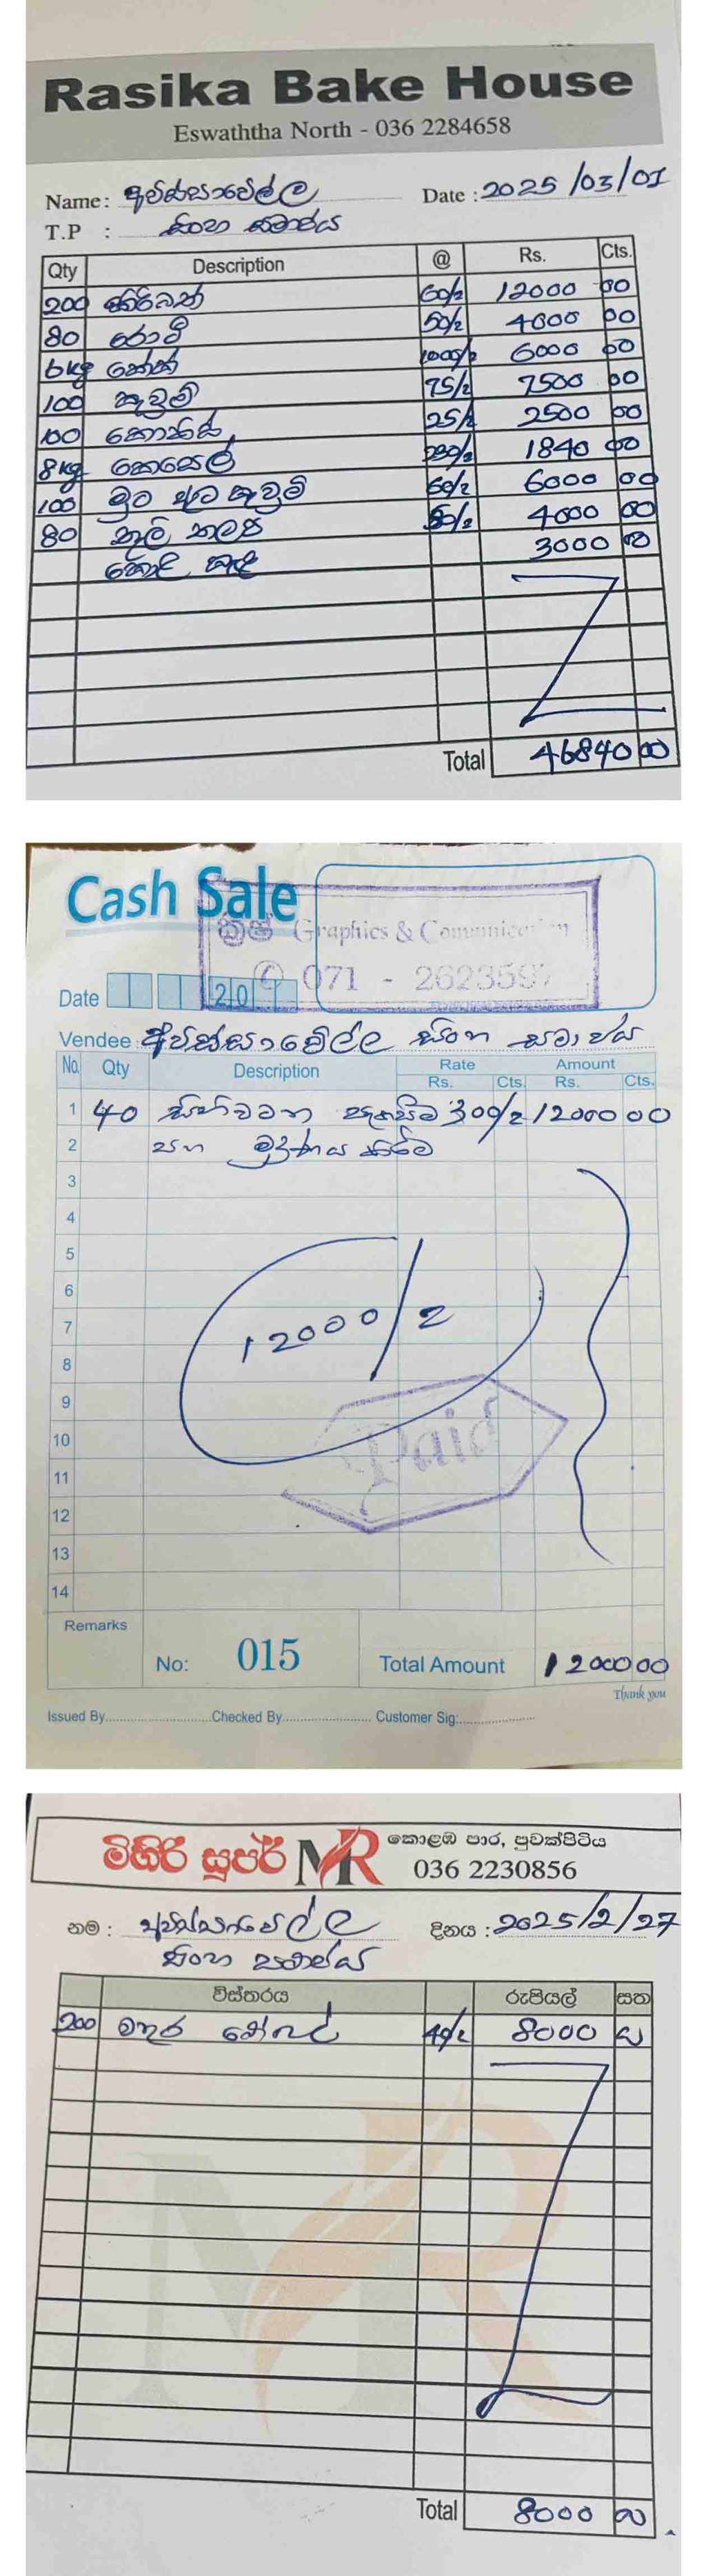 Rasika Bake House
Eswaththa North - 036 2284658
Name: අවිස්සාවේල්ල Date : 2025/03/01
T.P : සිංහ සමාජය
Qty Description @ Rs. Cts.
200 කිරිබත් 60/= 12000 00
80 රොටි 50/= 4000 00
6kg කේක් 1000/= 6000 00
100 කැවුම් 75/= 7500 00
100 කොකිස් 25/= 2500 00
8kg කෙසෙල් 230/= 1840 00
100 මුං ඇට කැවුම් 60/= 6000 00
80 තල 50/= 4000 00
3000 00
Total 46840 00
Cash Sale
Graphics & Communication
071 - 2623597
Date 20
Vendee: අවිස්සාවේල්ල සිංහ සමාජය
No. Qty Description Rate Amount
Rs. Cts. Rs. Cts.
1 40 සිහිවටන සැකසීම 300/= 12000 00
2 සහ මුද්‍රණය කිරීම
3
4
5
6
7
12000/=
8
9
10
Paid
11
12
13
14
Remarks
No: 015 Total Amount 12000 00
Thank you
Issued By Checked By Customer Sig:
මිහිරි සුපර් MR
කොළඹ පාර, පුවක්පිටිය
036 2230856
නම : අවිස්සාවේල්ල දිනය : 2025/2/27
සිංහ සමාජය
විස්තරය රුපියල් සත
200 වතුර බෝතල් 40/= 8000 00
Total 8000 00